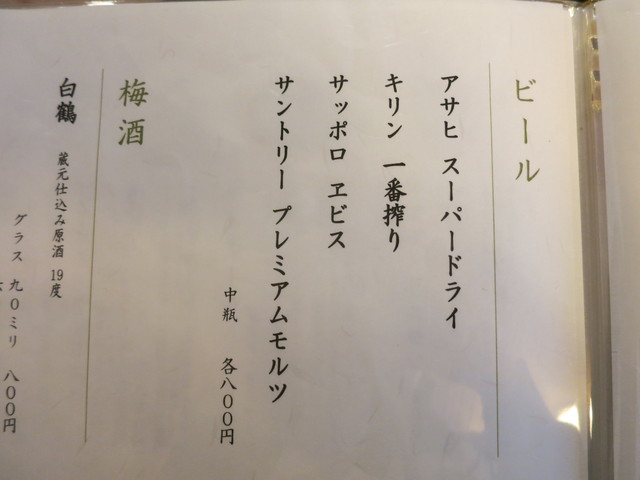 ビール
アサヒ スーパードライ
キリン 一番搾り
サッポロ ヱビス
サントリー プレミアムモルツ
中瓶 各八〇〇円
梅酒
白鶴 蔵元仕込み原酒 19度
グラス 九〇ミリ 八〇〇円